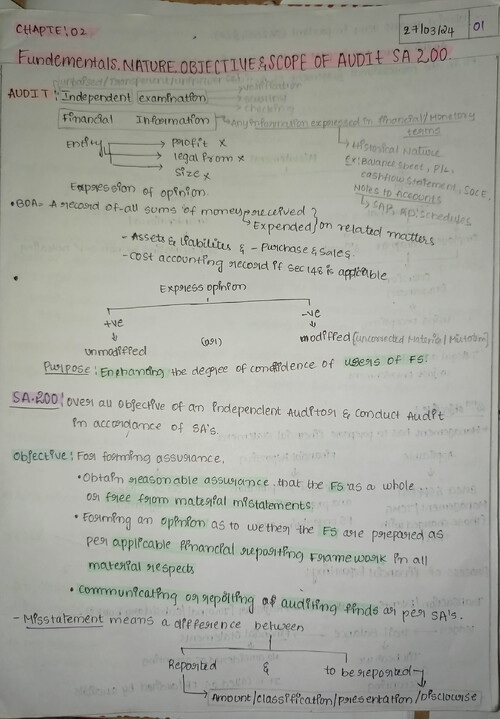 CHAPTE:02
27/03/24
01
Fundementals. NATURE, OBJECTIVE & SCOPE OF AUDIT SA 200.
AUDIT: Independent examination
verification
checking
Financial Information → Any information expressed in financial/Monetary terms
Entity → profit x
→ legal from x
→ size x
→ Historical Nature
Ex: Balance sheet, P/L,
cashflow statement, SOCE,
Notes to Accounts
Expression of opinion.
• BOA = A record of all sums of money → received
→ Expended } on related matters
- Assets & liabilites & - Purchase & Sales
- Cost accounting record if sec 148 is applicable
Express opinion
+ve -ve
unmodiffied (or) modiffied (uncorrected Material Misstm)
Purpose: Enehancing the degree of condidence of users of FS.
SA.200: over all objective of an independent Auditor & conduct Audit
in accordance of SA's.
Objective: For forming assurance,
• Obtain reasonable assurance that the FS as a whole
or free from material mistalements
• Forming an opinion as to wether the FS are prepared as
per applicable financial reporting Framework in all
material respects
• communicating or repolting of auditing finds as per SA's.
- Misstatement means a difference between
Reported & to be reported
Amount/classification/presentation/Disclousse